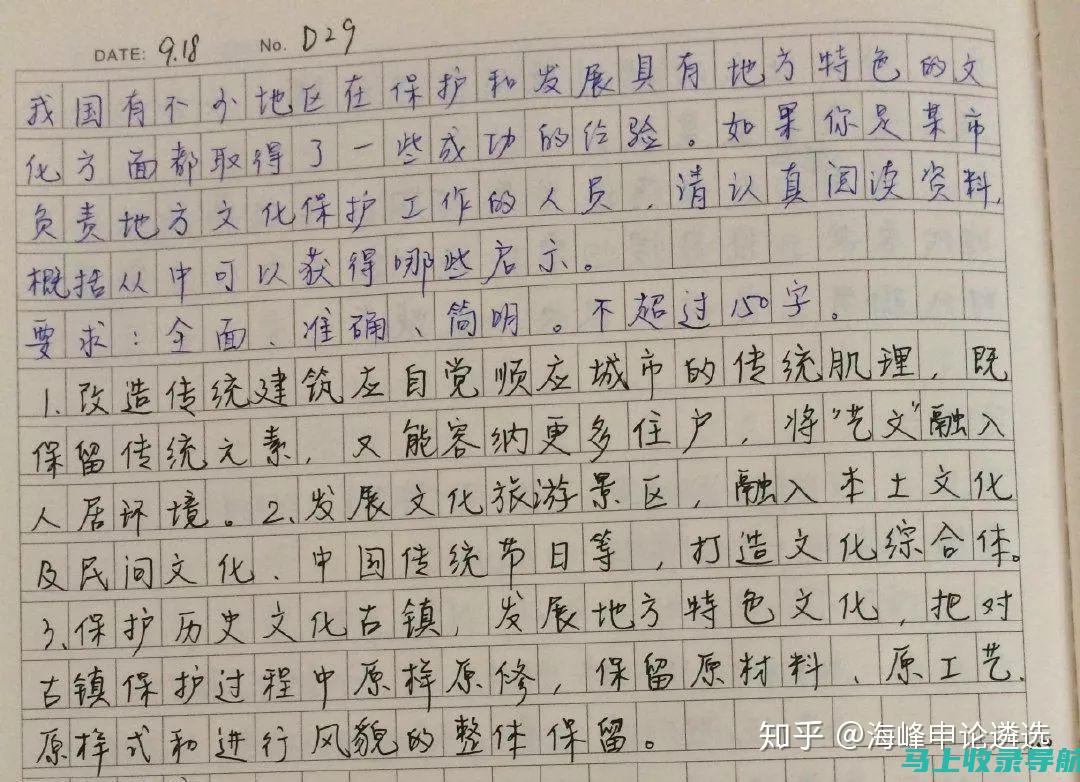 DATE: 9.18 No. D29
我国有不少地区在保护和发展具有地方特色的文
化方面都取得了一些成功的经验。如果你是某市
负责地方文化保护工作的人员，请认真阅读资料，
概括从中可以获得哪些启示。
要求：全面、准确、简明。不超过150字。
1.改造传统建筑应自觉顺应城市的传统肌理，既
保留传统元素，又能容纳更多住户，将“艺文”融入
人居环境。2、发展文化旅游景区，融入本土文化
及民间文化、中国传统节日等，打造文化综合体。
3、保护历史文化古镇，发展地方特色文化，把对
古镇保护过程中原样原修，保留原材料、原工艺、
原样式和进行风貌的整体保留。
知乎 @海峰申论遴选
马上收录导航